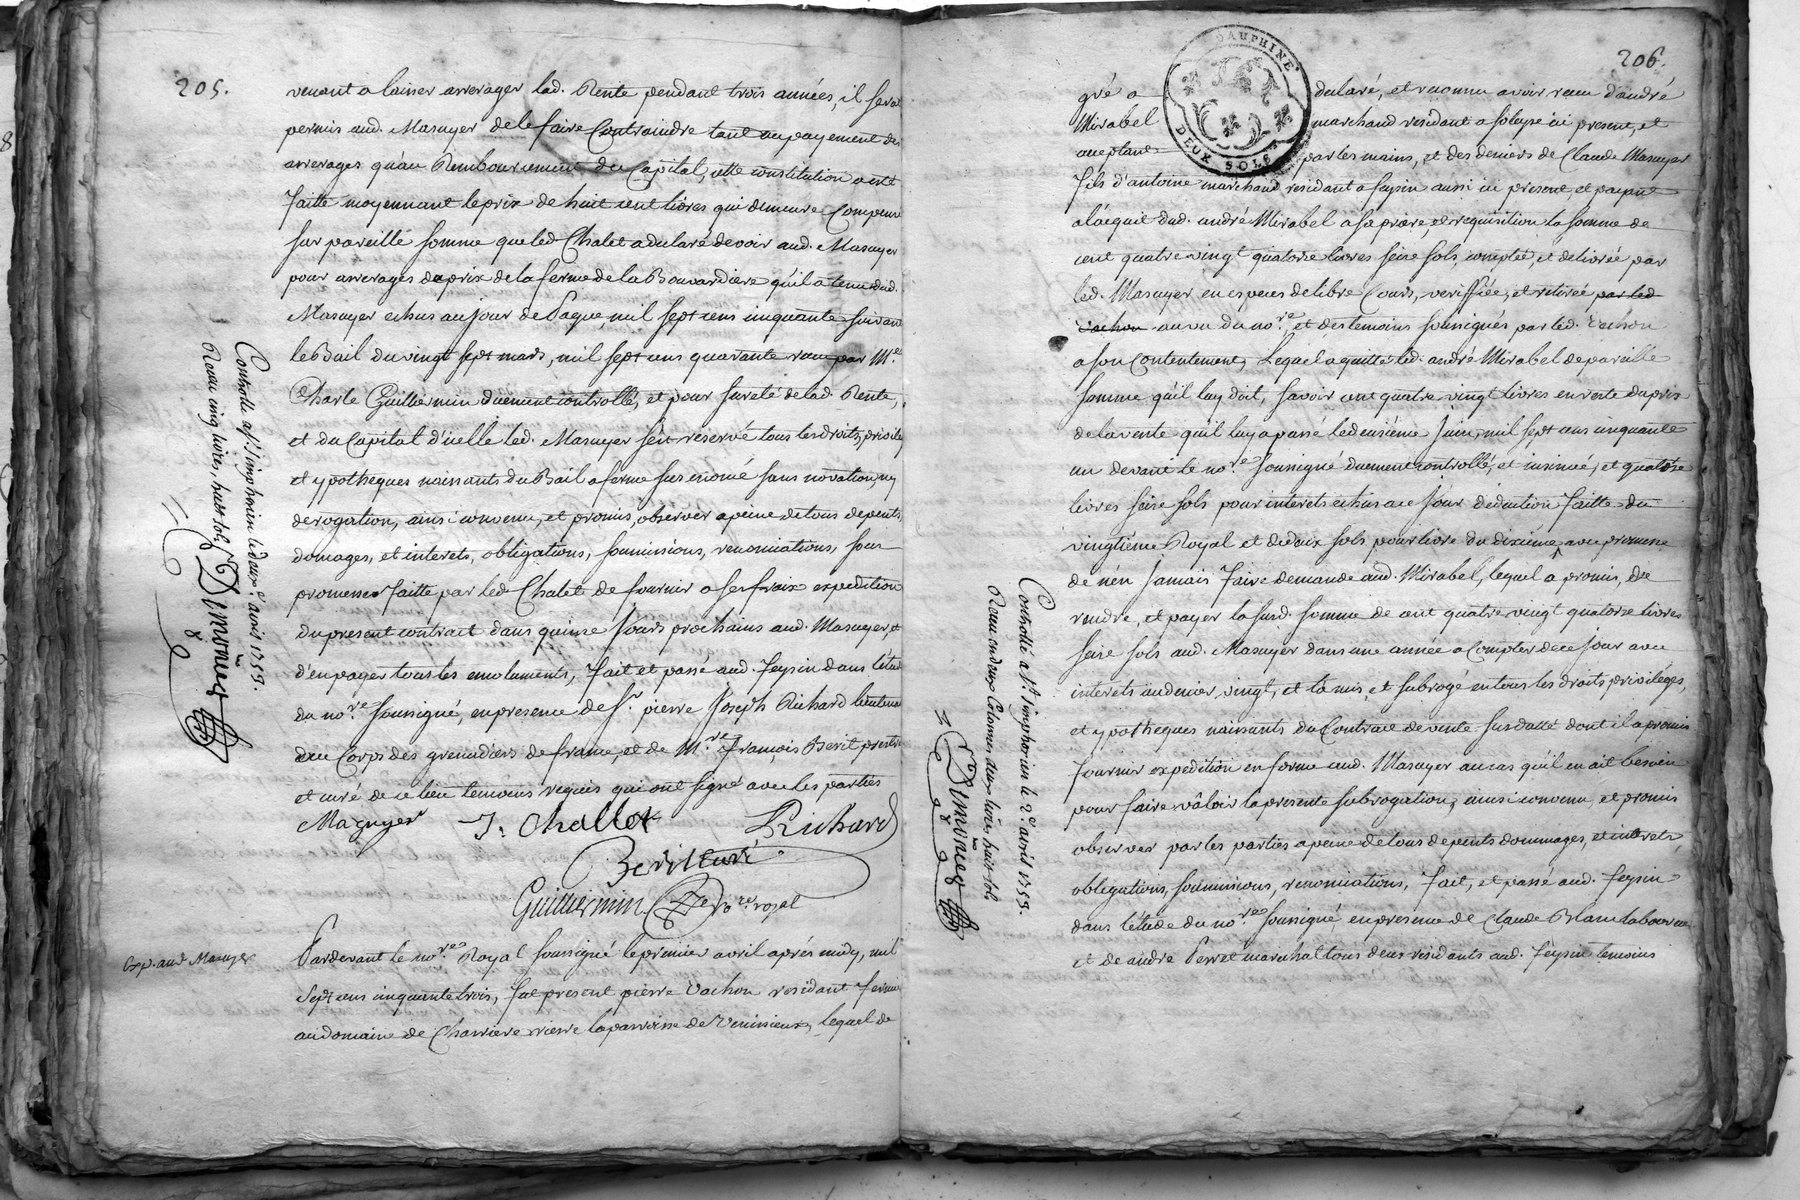 205.
venant a laisser arrerager lad. Rente pendant trois années, il sera
permis aud. Masuyer de le faire Contraindre tant au payement des
arrerages qu'au Remboursement du Capital, cette constitution a esté
faitte moyennant le prix de huit cent livres qui demeure Compensé
sur pareille somme que led Chalet a declaré devoir aud. Masuyer
pour arrerages du prix de la ferme de la Bouvardiere qu'il a tenu dud.
Masuyer echus au jour de Paque mil sept cens cinquante suivant
le Bail du vingt sept mars, mil sept cens quarante receu par Me.
Charle Guilliermin duement controllé, et pour sureté de lad. Rente,
et du Capital d'icelle led. Masuyer s'est reservé tous les droits, privileg
et ypotheques naissants du Bail a ferme sus enoncé sans novation, ny
derogation, ainsi convenu, et promis, observer a peine de tous depents,
domages, et interets, obligations, soumissions, renonciations, sous
promesse faitte par led Chalet de fournir a ses fraix expedition
du present contract dans quinse jours prochains aud. Masuyer et
d'en payer tous les emoluments, fait et passé aud. feysin dans l'étude
du nore. soussigné, en presence de Sr. pierre Joseph Richard lieutenant
au Corps des grenadiers de france, et de Mre. François Berit pretre
et curé de ce lieu temoins requis qui ont signé avec les parties
Masuyer J. Challet Richard
Berit Curé
Guilliermin Nore. royal
Controllé a St. simphorien le deuxe. avril 1753.
Receu cinq livres, huit sols
Dimonier
Exp. aud Masuyer
Pardevant le nore. Royal soussigné le premier avril aprés midy, mil
sept cens cinquante trois, fut present pierre Vachon residant fermier
au domaine de Charriere rierre la parroisse de Venissieux, lequel de
206.
DAUPHINE
DEUX SOLS
gré a declaré, et reconnu avoir receu d'andré
Mirabel marchand residant a solayse ici present, et
acceptant par les mains, et des deniers de Claude Masuyer
fils d'antoine marchand residant a feysin aussi ici present, et payant
a l'acquit dud. andré Mirabel a sa priere, et requisition la somme de
cent quatre vingt quatorze livres seise sols, comptée, et delivrée par
led. Masuyer en especes de libre Cours, veriffiée, et retirée par led
Vachon au vu du nore. et des temoins soussignés par led. Vachon
a son Contentement, Lequel a quitté led. andré Mirabel de pareille
somme qu'il luy doit, savoir cent quatre vingt livres en reste du prix
de la vente qu'il luy a passé le deusième Juin, mil sept cens cinquante
un devant le nore. soussigné duement controllé, et insinué, et quatorze
livres seise sols pour interets echus a ce Jour deduction faitte du
vingtième Royal et de deux sols pour livre du dixiéme avec promesse
de n'en Jamais faire demande aud. Mirabel, lequel a promis, de
rendre, et payer la susd. somme de cent quatre vingt quatorze livres
seise sols aud. Masuyer dans une année a Compter de ce jour avec
interets au denier vingt, et l'a mis, et subrogé en tous les droits privileges,
et ypotheques naissants du Contract de vente susdatté dont il a promis
fournir expedition en forme aud. Masuyer au cas qu'il en ait besoin
pour faire vâloir la presente subrogation, ainsi convenu, et promis
observer par les parties a peine de tous depents dommages, et interets,
obligations, soumissions, renonciations, fait, et passé aud. feysin
dans l'étude du nore. soussigné en presence de Claude Blanc laboureur
et de andre Perret marechal tous deux residants aud. feysin temoins
Controllé a St. simphorien le 2e. avril 1753.
Receu en deux Colonnes deux livres, huit sols
Dimonier